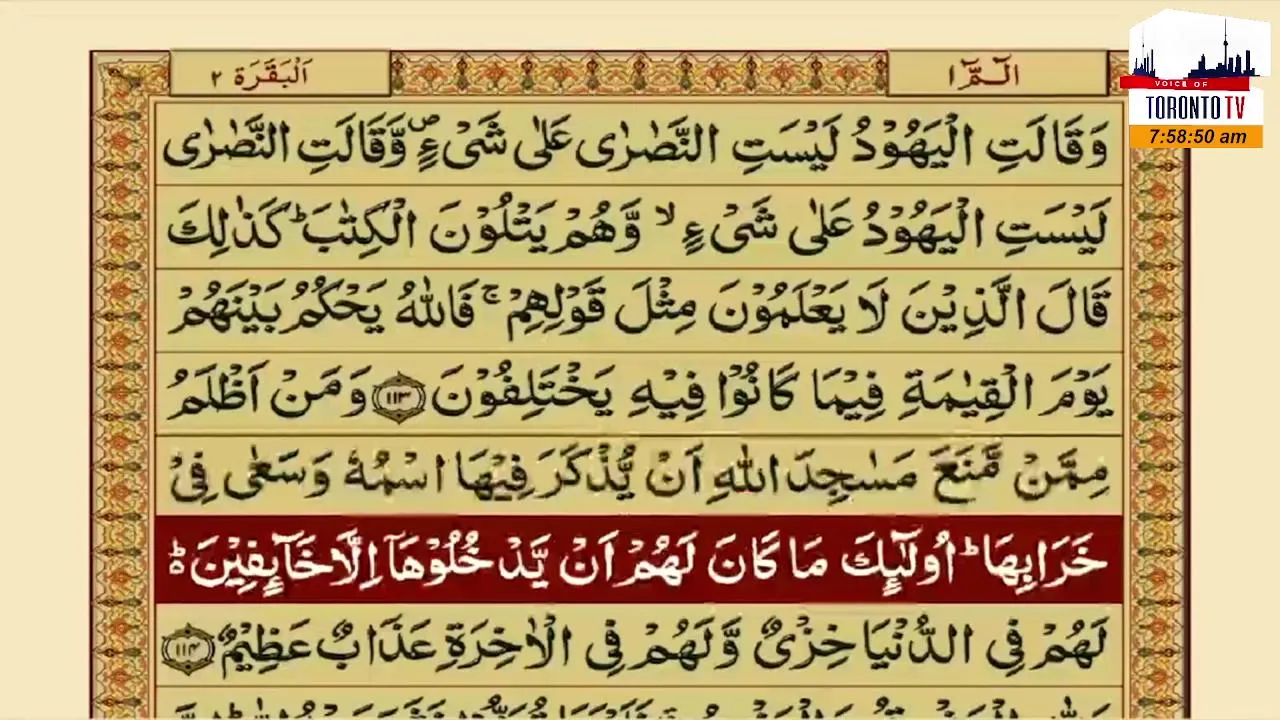 الٓمّٓ ١
اَلْبَقَرَة ٢
VOICE OF
TORONTO TV
7:58:50 am
وَقَالَتِ الْيَهُوْدُ لَيْسَتِ النَّصٰرٰى عَلٰى شَىْءٍ ۪ وَّقَالَتِ النَّصٰرٰى
لَيْسَتِ الْيَهُوْدُ عَلٰى شَىْءٍ ۙ وَّهُمْ يَتْلُوْنَ الْكِتٰبَ ؕ كَذٰلِكَ
قَالَ الَّذِيْنَ لَا يَعْلَمُوْنَ مِثْلَ قَوْلِهِمْ ۚ فَاللّٰهُ يَحْكُمُ بَيْنَهُمْ
يَوْمَ الْقِيٰمَةِ فِيْمَا كَانُوْا فِيْهِ يَخْتَلِفُوْنَ ١١٣ وَمَنْ اَظْلَمُ
مِمَّنْ مَّنَعَ مَسٰجِدَ اللّٰهِ اَنْ يُّذْكَرَ فِيْهَا اسْمُهٗ وَسَعٰى فِىْ
خَرَابِهَا ؕ اُولٰٓئِكَ مَا كَانَ لَهُمْ اَنْ يَّدْخُلُوْهَاۤ اِلَّا خَآئِفِيْنَ ؕ
لَهُمْ فِى الدُّنْيَا خِزْىٌ وَّلَهُمْ فِى الْاٰخِرَةِ عَذَابٌ عَظِيْمٌ ١١٤